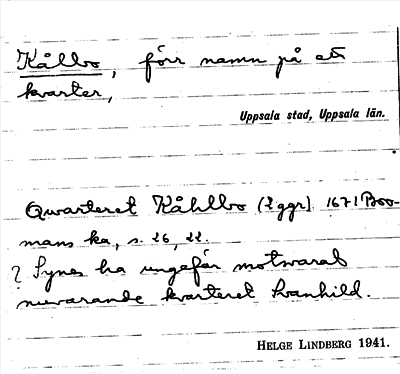 Kålbo, förr namn på ett
kvarter,
Uppsala stad, Uppsala län.
Qwarteret Kåhlbo (2 ggr) 1671 Boo-
mans ka, s. 26, 22.
? Synes ha ungefär motsvarat
nuvarande kvarteret Svanhild.
HELGE LINDBERG 1941.